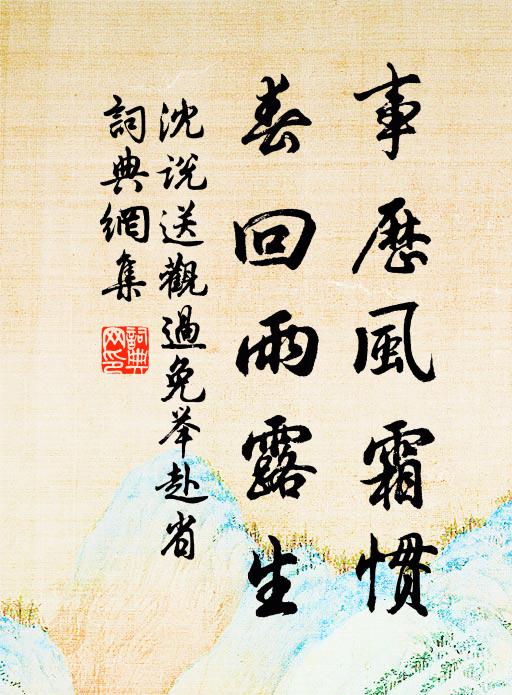 事歷風霜慣
春回雨露生
沈說送觀過免举赴省
詞典網集
詞典網印